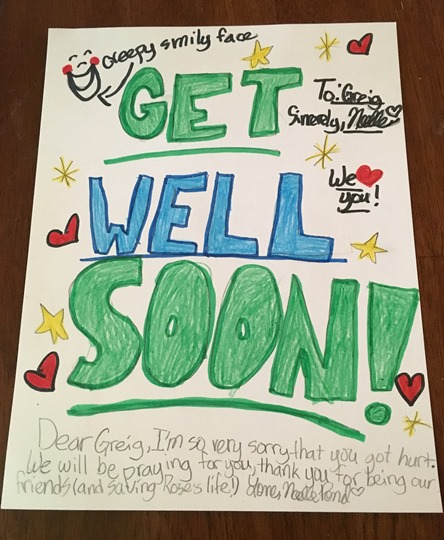 creepy smily face
GET
To: Greig
Sinerely, Noelle
WELL
We
you!
SOON!
Dear Greig, I'm so very sorry that you got hurt.
We will be praying for you, thank you for being our
friends (and saving Rose's life!) Love, Noelle Pond